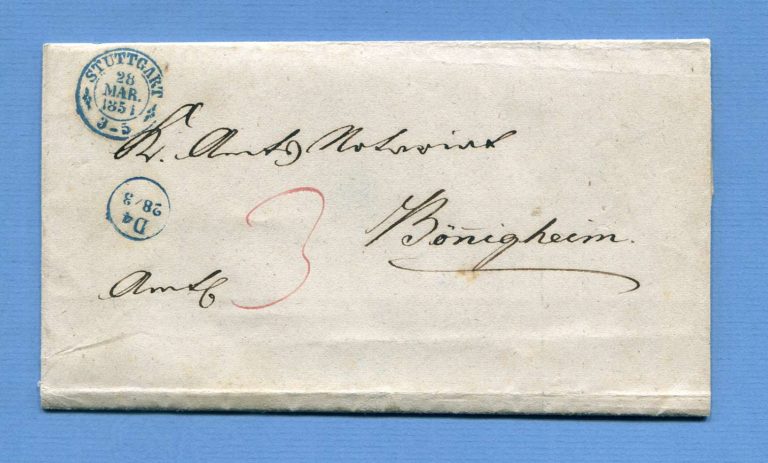 STUTTGART
28
MAR.
1851
3-5
K. Amts Notariat
D4
28/3
3
Bönigheim.